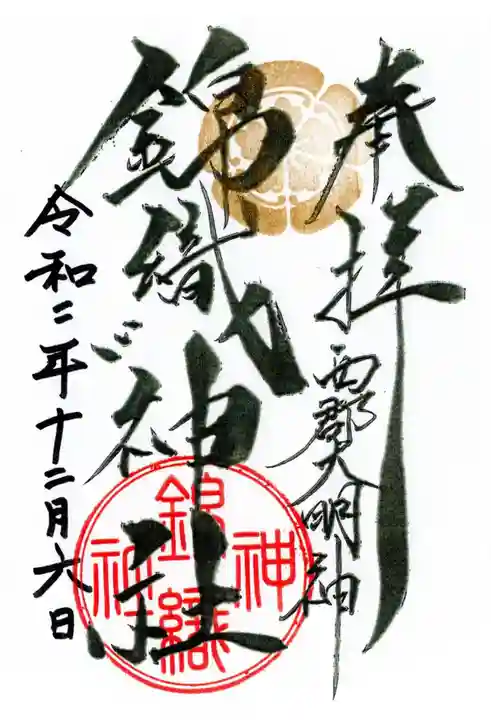 奉拝
西郡大明神
錦織神社
令和二年十二月六日
錦織
神社